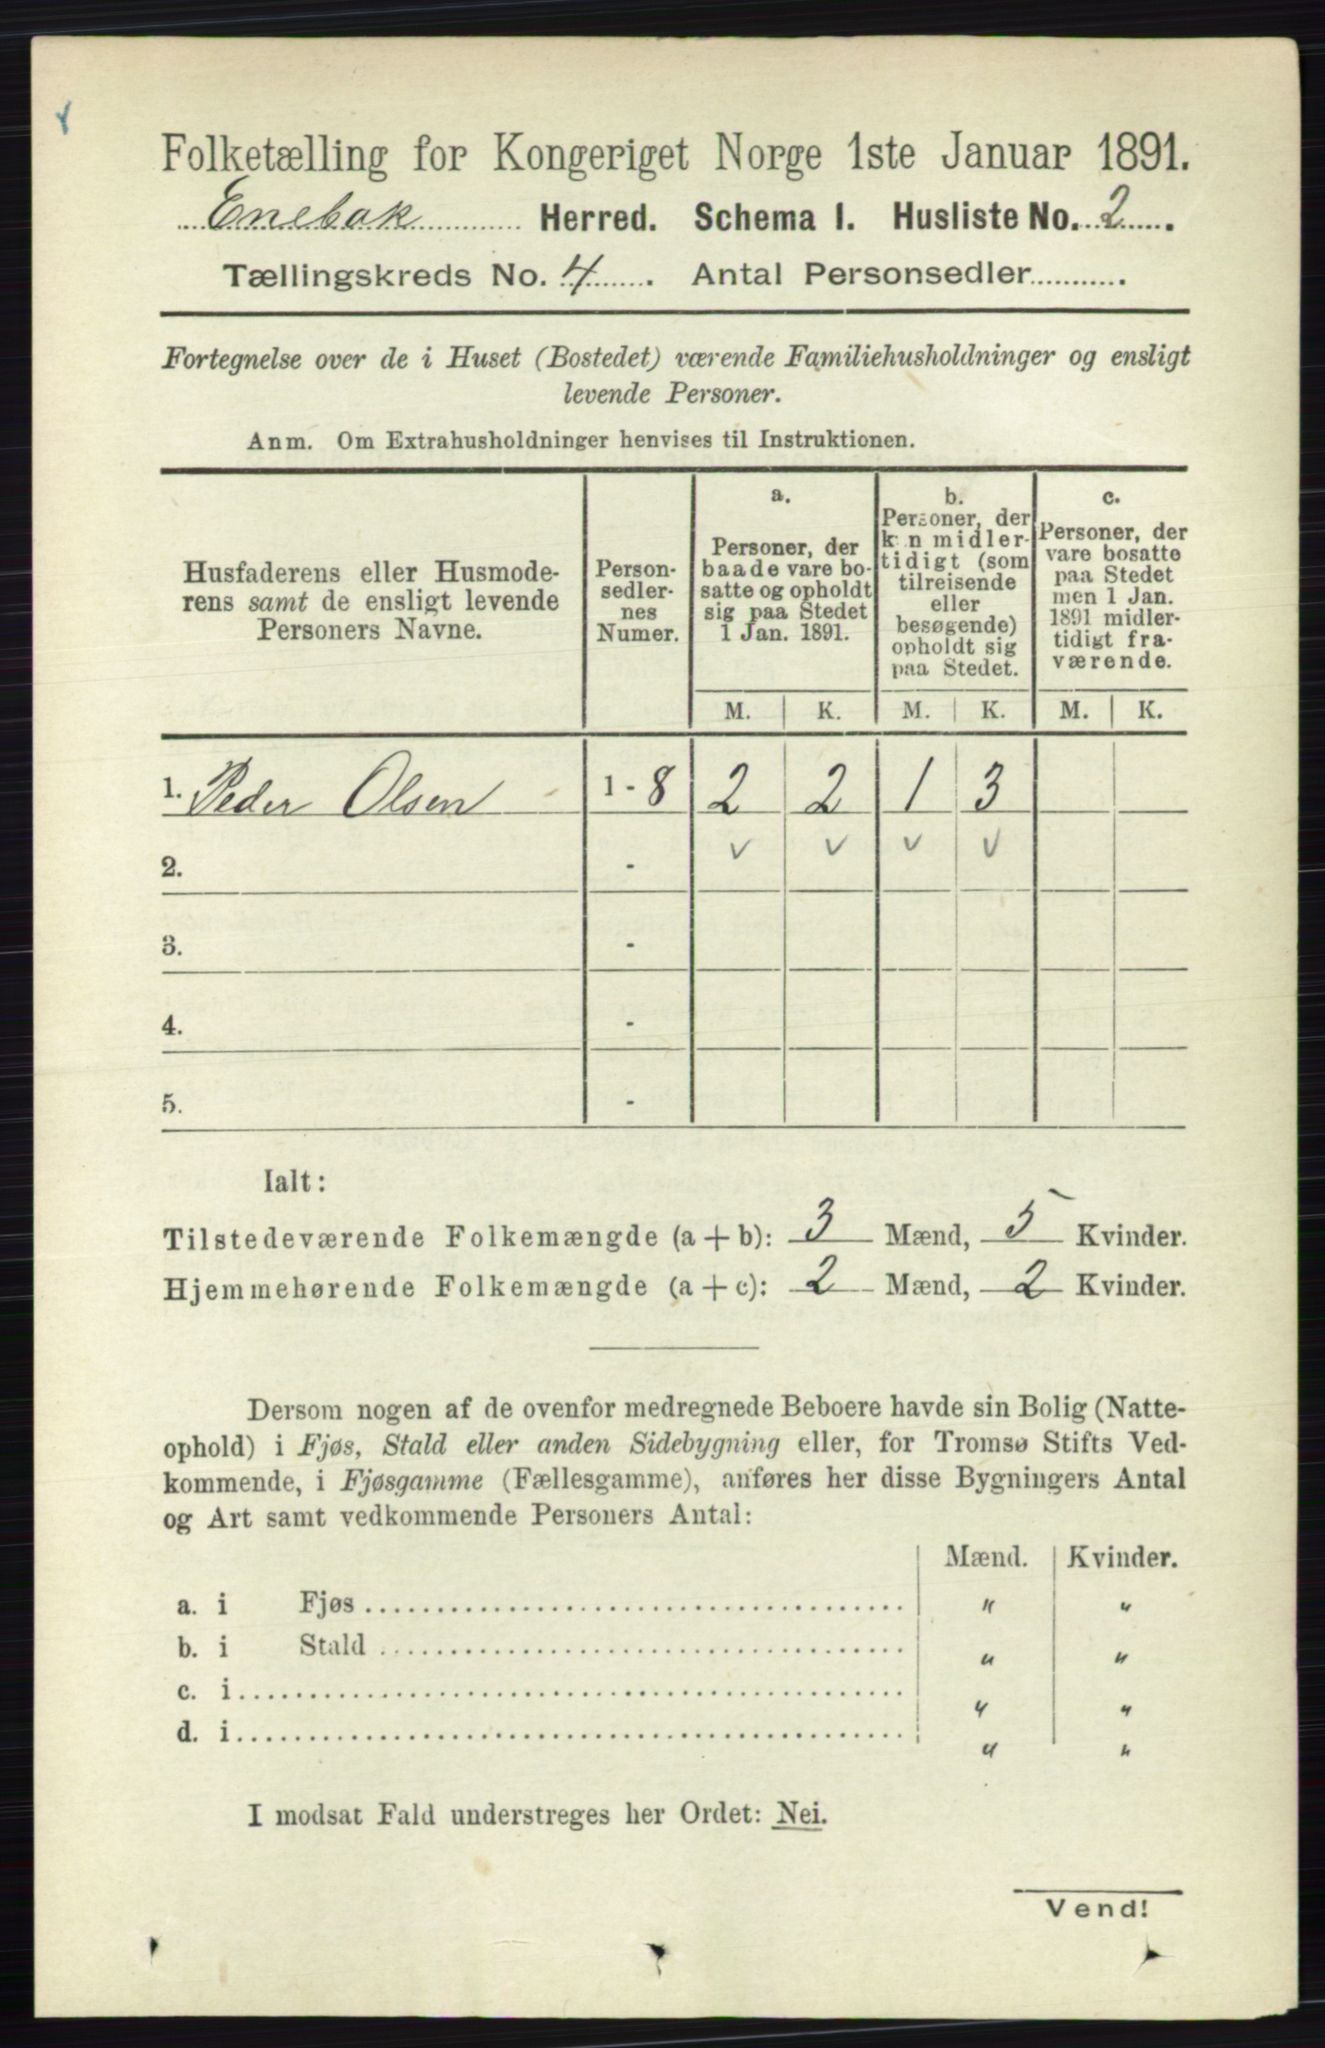 Folketælling for Kongeriget Norge 1ste Januar 1891.
Enebak Herred. Schema I. Husliste No. 2.
Tællingskreds No. 4. Antal Personsedler.
Fortegnelse over de i Huset (Bostedet) værende Familiehusholdninger og ensligt
levende Personer.
Anm. Om Extrahusholdninger henvises til Instruktionen.
Husfaderens eller Husmode-
rens samt de ensligt levende
Personers Navne.
Person-
sedler-
nes
Numer.
a.
Personer, der
baade vare bo-
satte og opholdt
sig paa Stedet
1 Jan. 1891.
b.
Personer, der
kun midler-
tidigt (som
tilreisende
eller
besøgende)
opholdt sig
paa Stedet.
c.
Personer, der
vare bosatte
paa Stedet
men 1 Jan.
1891 midler-
tidigt fra-
værende.
M. K. M. K. M. K.
1. Peder Olsen 1 - 8 2 2 1 3
2. - v v v v
3. -
4. -
5. -
Ialt:
Tilstedeværende Folkemængde (a + b): 3 Mænd, 5 Kvinder.
Hjemmehørende Folkemængde (a + c): 2 Mænd, 2 Kvinder.
Dersom nogen af de ovenfor medregnede Beboere havde sin Bolig (Natte-
ophold) i Fjøs, Stald eller anden Sidebygning eller, for Tromsø Stifts Ved-
kommende, i Fjøsgamme (Fællesgamme), anføres her disse Bygningers Antal
og Art samt vedkommende Personers Antal:
Mænd. Kvinder.
a. i Fjøs " "
b. i Stald " "
c. i " "
d. i " "
I modsat Fald understreges her Ordet: Nei.
Vend!